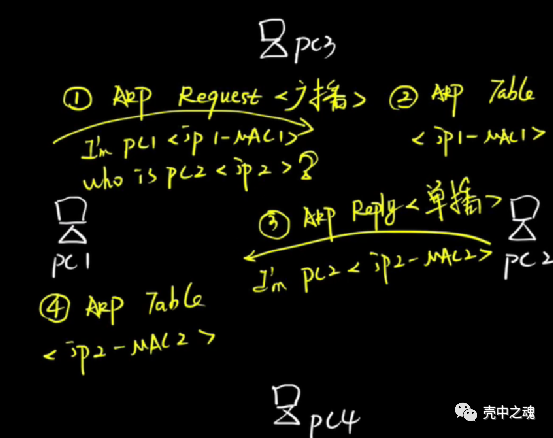 PC3
① ARP Request <广播>
I'm PC1 <ip1-MAC1>
who is PC2 <ip2>?
② ARP Table
<ip1-MAC1>
③ ARP Reply<单播>
I'm PC2 <ip2-MAC2>
PC1
PC2
④ ARP Table
<ip2-MAC2>
PC4
壳中之魂